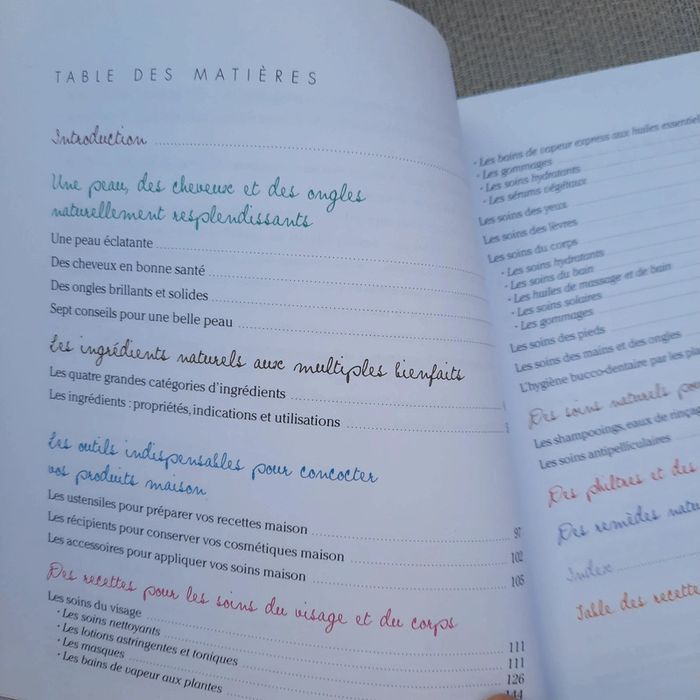 TABLE DES MATIÈRES
Introduction
Une peau, des cheveux et des ongles
naturellement resplendissants
Une peau éclatante
Des cheveux en bonne santé
Des ongles brillants et solides
Sept conseils pour une belle peau
Les ingrédients naturels aux multiples bienfaits
Les quatre grandes catégories d'ingrédients
Les ingrédients : propriétés, indications et utilisations
Les outils indispensables pour concocter
vos produits maison
Les ustensiles pour préparer vos recettes maison 97
Les récipients pour conserver vos cosmétiques maison 102
Les accessoires pour appliquer vos soins maison 105
Des recettes pour les soins du visage et du corps
Les soins du visage 111
• Les soins nettoyants 111
• Les lotions astringentes et toniques 126
• Les masques 144
• Les bains de vapeur aux plantes
• Les bains de vapeur express aux huiles
• Les gommages
• Les soins hydratants
• Les sérums végétaux
Les soins des yeux
Les soins des lèvres
Les soins du corps
• Les soins hydratants
• Les soins du bain
• Les huiles de massage et de bain
• Les soins solaires
• Les gommages
Les soins des pieds
Les soins des mains et des ongles
L'hygiène bucco-dentaire par les
Des soins naturels
Les shampooings, eaux de
Les soins antipelliculaires
Des philtres et des
Des remèdes
Index
Table des